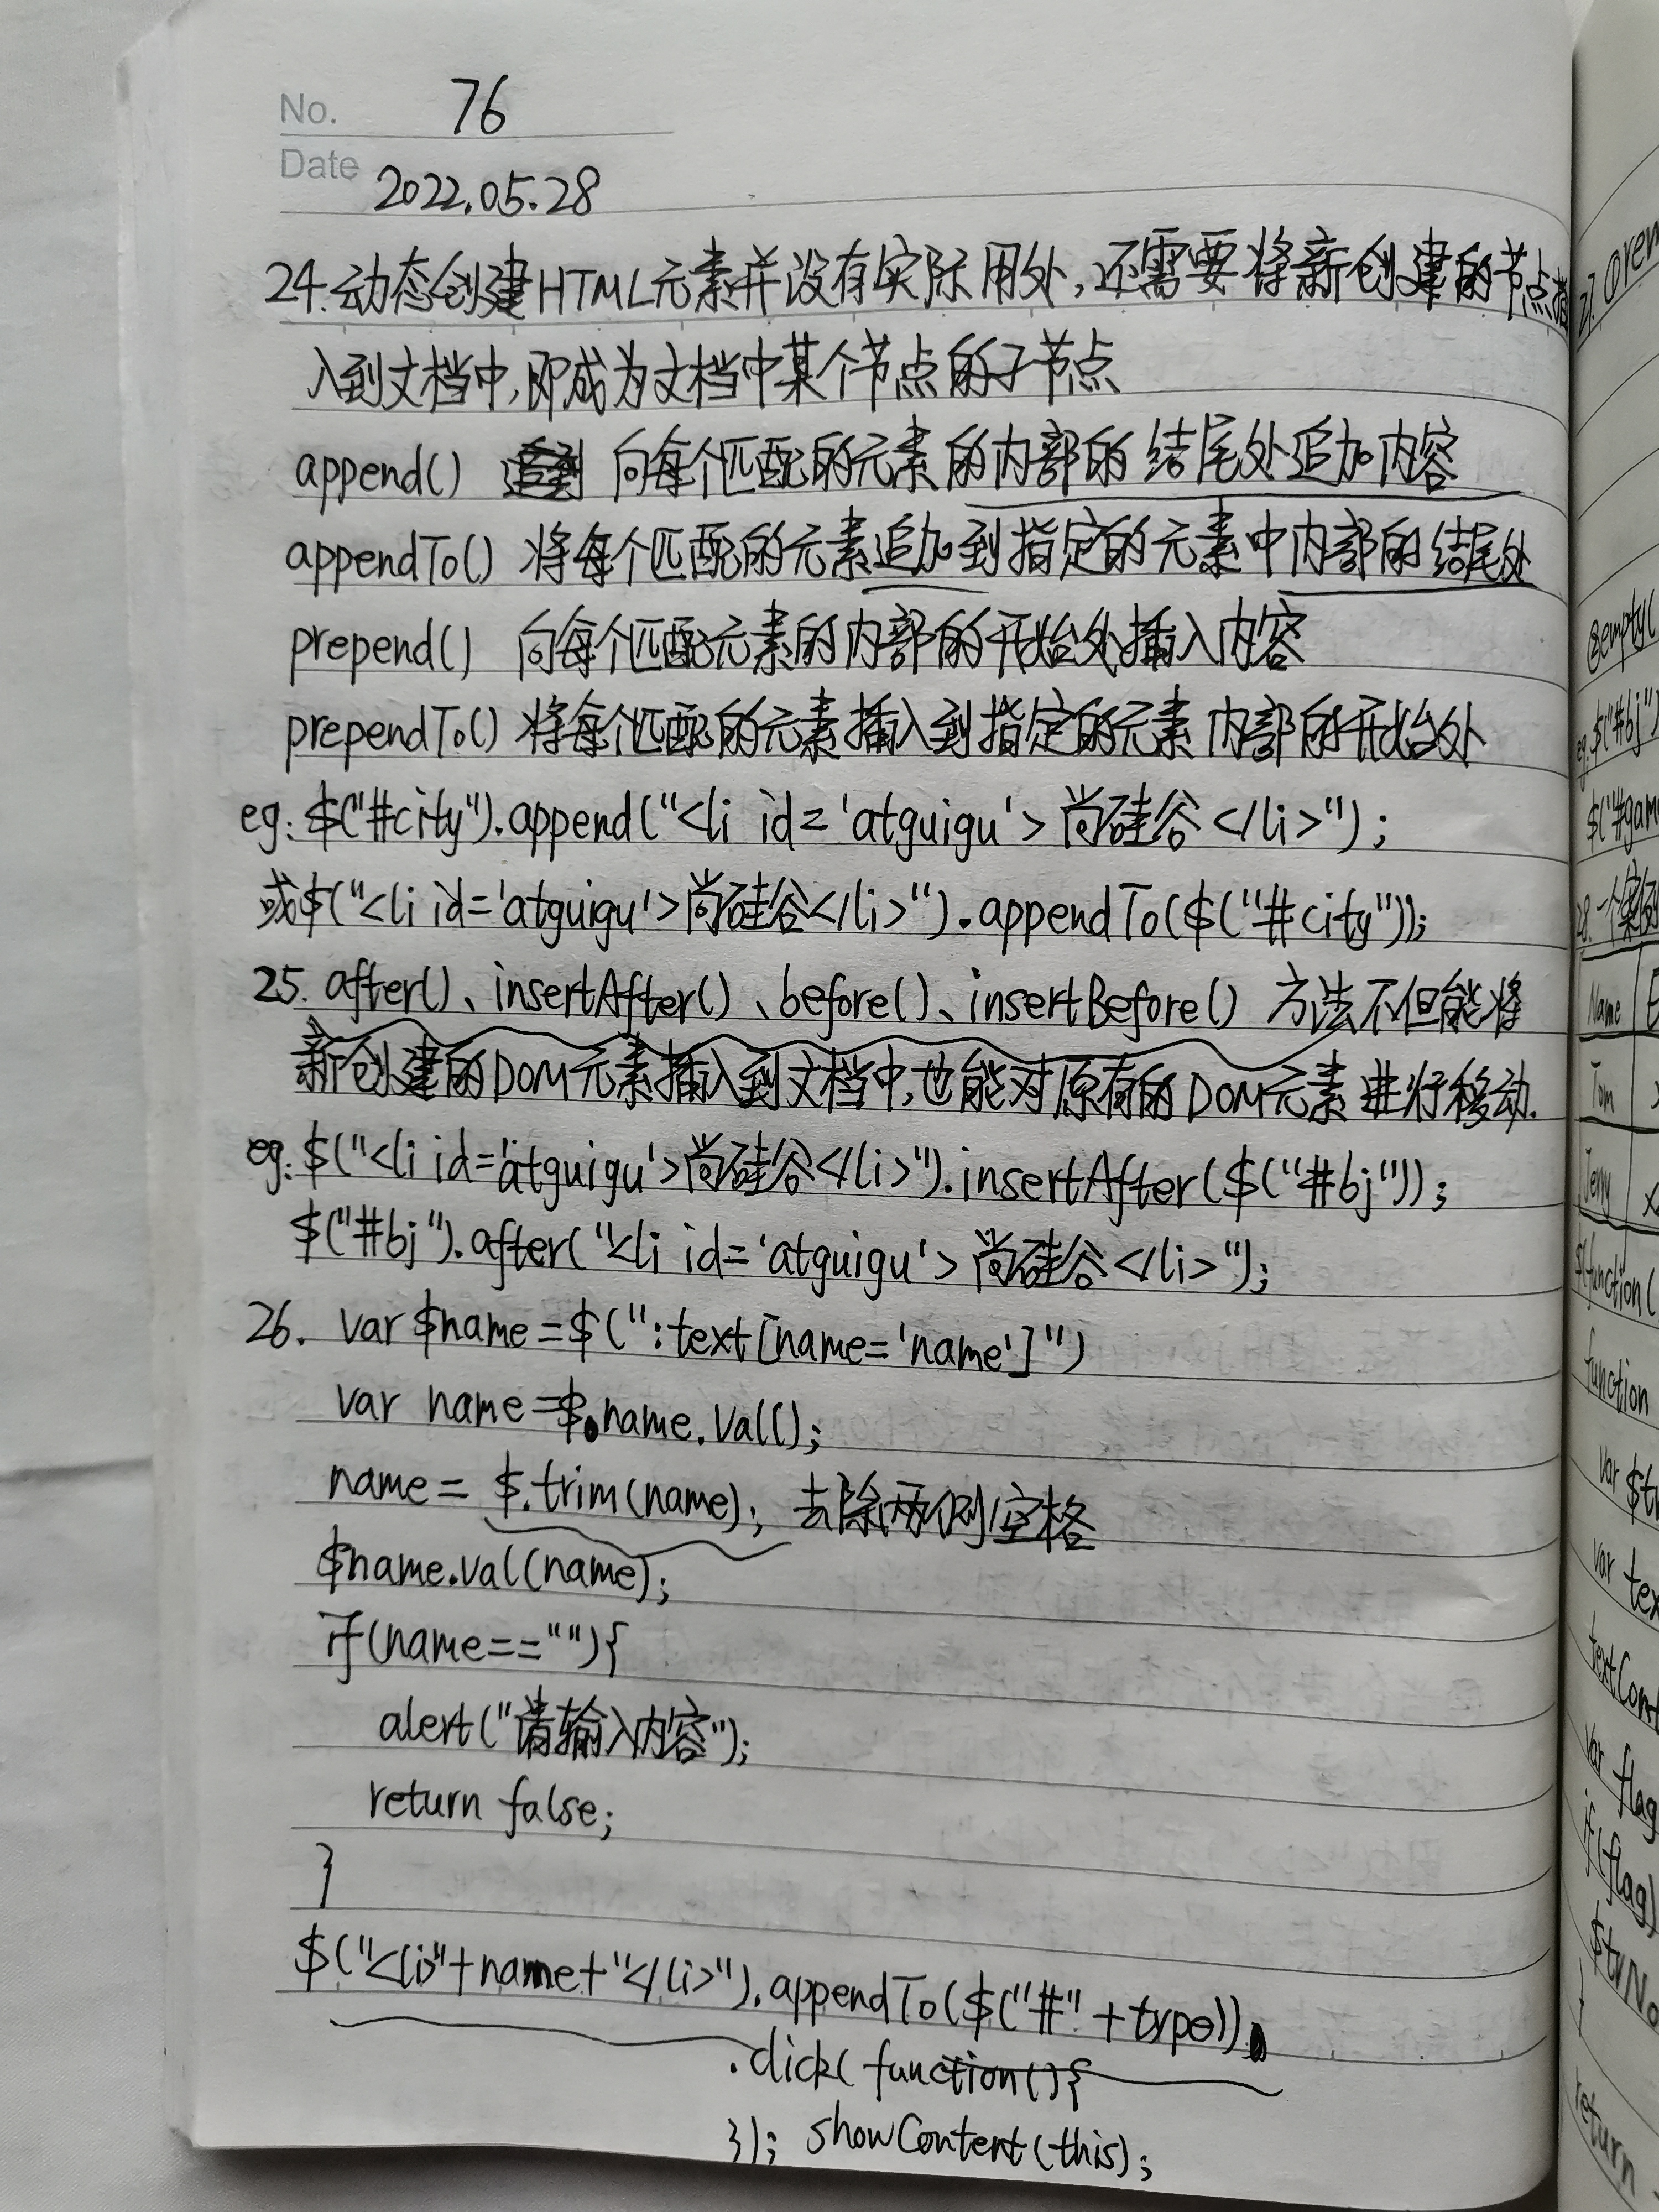 No. 76
Date 2022.05.28
24.动态创建HTML元素并没有实际用处,还需要将新创建的节点插
入到文档中,即成为文档中某个节点的子节点
append() 向每个匹配的元素的内部的结尾处追加内容
appendTo() 将每个匹配的元素追加到指定的元素中内部的结尾处
prepend() 向每个匹配元素的内部的开始处插入内容
prependTo() 将每个匹配的元素插入到指定的元素内部的开始处
eg: $("#city").append("<li id='atguigu'>尚硅谷</li>");
或$("<li id='atguigu'>尚硅谷</li>").appendTo($("#city"));
25. after()、insertAfter()、before()、insertBefore() 方法不但能将
新创建的DOM元素插入到文档中,也能对原有的DOM元素进行移动.
eg: $("<li id='atguigu'>尚硅谷</li>").insertAfter($("#bj"));
$("#bj").after("<li id='atguigu'>尚硅谷</li>");
26. var $name=$(":text[name='name']")
var name=$name.val();
name= $.trim(name); 去除两侧空格
$name.val(name);
if(name==""){
alert("请输入内容");
return false;
}
$("<li>"+name+"</li>").appendTo($("#"+type))
.click(function(){
}); showContent(this);
27.
@empty(
eg.$("#bj")
28.一个
Name
Tom
Jerry
$(function(
function
var $tr
var tex
textCont
var flag
if(flag)
$trNo
}
return